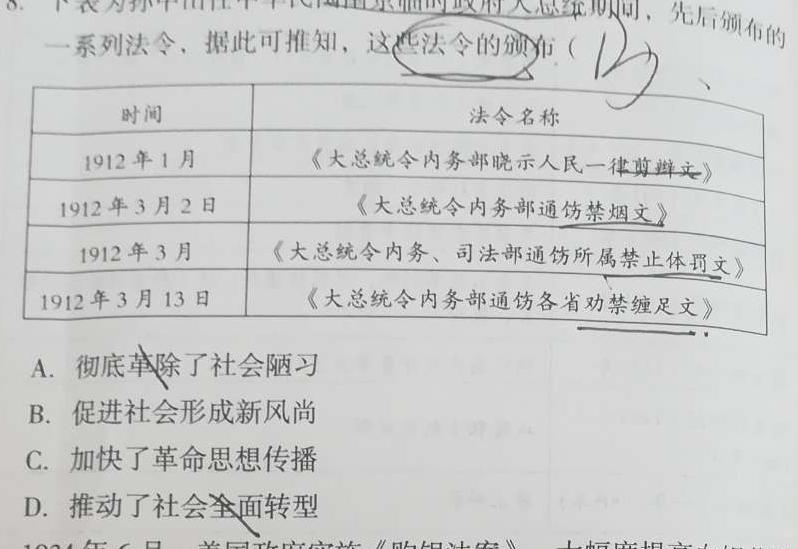 8. 下表为孙中山任中华民国南京临时政府大总统期间，先后颁布的
一系列法令，据此可推知，这些法令的颁布（ B ）
时间 法令名称
1912年1月 《大总统令内务部晓示人民一律剪辫文》
1912年3月2日 《大总统令内务部通饬禁烟文》
1912年3月 《大总统令内务、司法部通饬所属禁止体罚文》
1912年3月13日 《大总统令内务部通饬各省劝禁缠足文》
A. 彻底革除了社会陋习
B. 促进社会形成新风尚
C. 加快了革命思想传播
D. 推动了社会全面转型
1934年6月，美国政府实施《购银法案》，大幅度提高